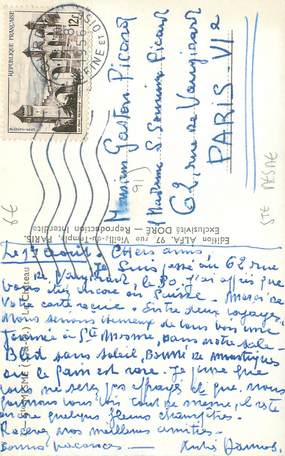 RÉPUBLIQUE FRANÇAISE
12F
PARIS 13
Monsieur Gaston Picard
Madame S. Picard
62, rue de Vaugirard
PARIS VIe
6€
91
STE MESME
Edition ALFA, 97 rue Vieille-du-Temple, PARIS.
Exclusivité DORÉ — Reproduction Interdite
Le 1er Août. Chers amis,
Je suis passé au 62 rue
de Vaugirard, le 30. J'ai appris que
vous étiez encore en Suisse. Merci de
votre carte reçue. Entre deux voyages
Nous serions heureux de vous voir une
journée à Ste Mesme, dans notre sale
Bled sans soleil, bourré de moustiques
où le Pain est rare. Je pense que
vous ne serez pas effrayés et que nous
pourrons vous voir tout de même, il reste
encore quelques fleurs champêtres.
Recevez nos meilleures amitiés.
Bonnes vacances